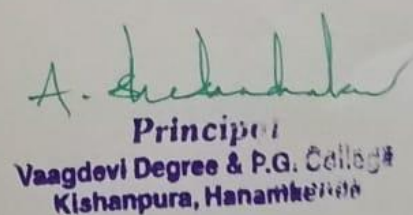 A.
Principal
Vaagdevi Degree & P.G. College
Kishanpura, Hanamkonda